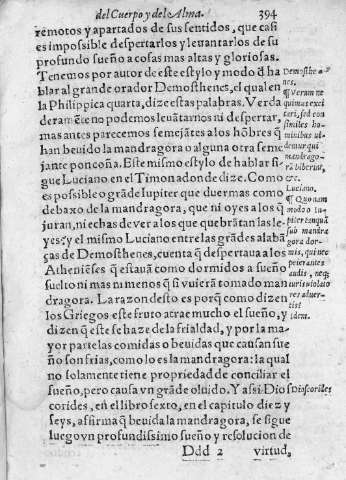 del Cuerpo y del Alma.
394
remotos y apartados de sus sentidos, que casi
es impossible despertarlos y leuantarlos de su
profundo sueño a cosas mas altas y gloriosas.
Tenemos por autor de este estylo y modo d̃ ha
blar al grande orador Demosthenes, el qual en
la Philippica quarta, dize estas palabras. Verda
deramẽte no podemos leuãtarnos ni despertar,
mas antes parecemos semejãtes a los hõbres q̃
han beuido la mandragora o alguna otra seme
jante ponçoña. Este mismo estylo de hablar si
gue Luciano en el Timon adonde dize. Como
es possible o grãde Iupiter que duermas como
debaxo de la mandragora, que ni oyes a los q̃
juran, ni echas de ver a los que quebrãtan las le
yes? y el mismo Luciano entre las grãdes alabã
ças de Demosthenes, cuenta q̃ despertaua a los
Atheniẽses q̃ estauã como dormidos a sueño
suelto ni mas ni menos q̃ si vuierã tomado man
dragora. La razon desto es porq̃ como dizen
los Griegos este fruto atrae mucho el sueño, y
dizen q̃ este se haze de la frialdad, y por la ma-
yor parte las comidas o beuidas que causan sue
ño son frias, como lo es la mandragora: la qual
no solamente tiene propriedad de conciliar el
sueño, pero causa vn grãde oluido. Y assi Dios
corides, en el libro sexto, en el capitulo diez y
seys, affirma q̃ beuida la mandragora, se sigue
luego vn profundissimo sueño y resolucion de
Ddd 2
virtud,
Demosthe
nes.
¶ Verum ne
quimus exci
tari, sed con
similes ho-
minibus ui-
demur qui
mandrago-
rã biberint,
&c.
Luciano.
¶ Quo nam
modo Iu-
piter tenquã
sub mandra
gora dor-
mis, qui nec
peierantes
audis, neq;
iniurios uiolato
res aduer-
tis?
idem.
Dioscorides